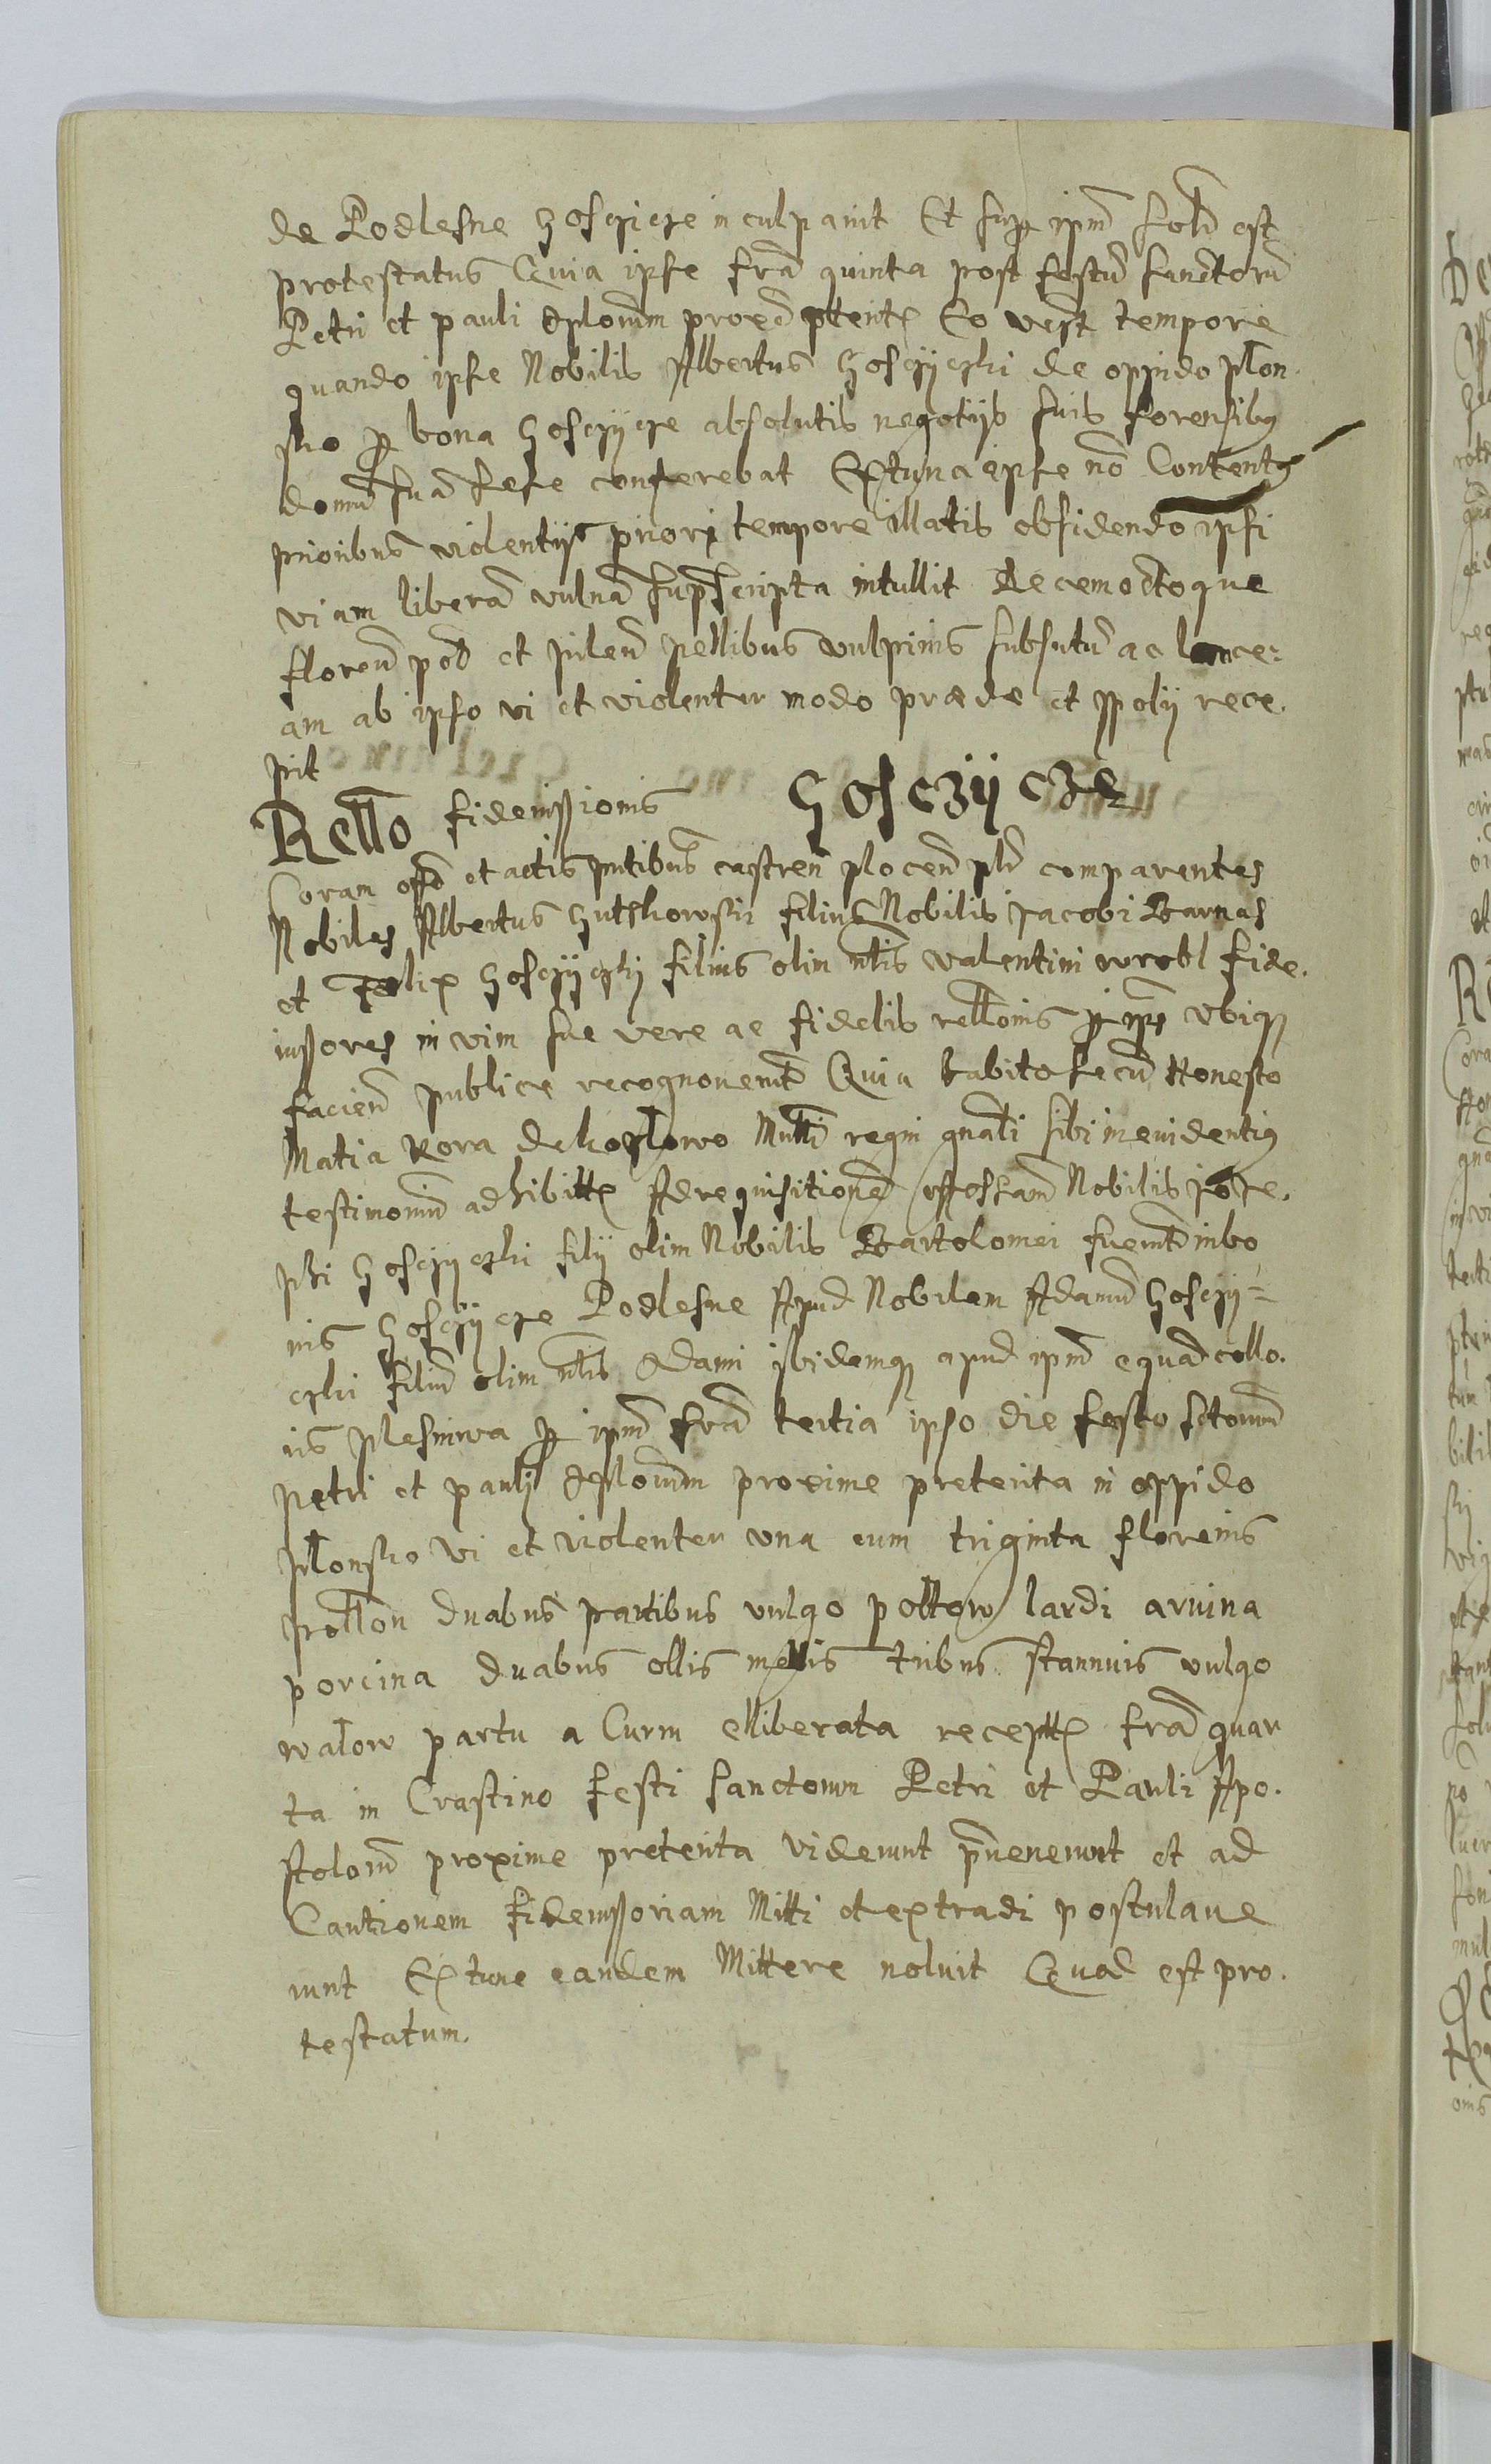 de Podlesne Gosczicze inculpavit Et sup ipm sold est
protestatus Quia ipse fra quinta post festu sanctoru
Petri et pauli Aplorum proxe pterit Eo vest tempore
quando ipse Nobilis Albertus Gosczyczki de oppido plon.
sko p bona Gosczycze absolutis negotijs suis forensibq
domu sua sese conferebat Extunc ipse no Contentq
prioribus violentijs priori tempore illatis obsidendo ipsi
viam libera vulna suprascripta intullit decemoctoque
floren pod et pileu pellibus vulpinis subsutu ac lance:
am ab ipso vi et violenter modo praede et spolij rece.
pit
Rello fideiussionis Gosczycze
Coram offo et actis pntibus castren plocen plr comparentes
Nobiles Albertus Gutkowski filius Nobilis Jacobi Barnas
et Felix Gosczyczki filius olim nlis valentini wrobl fide.
iussores in vim sue vere ac fidelis rellonis p ipos ubiq
facien publice recognoverut Quia habito secu Honesto
Matia Kora de kozlowo Mntli regni gnali sibi in evidentiq
testimoniu adhibitt Ad requisitione Nobilis Jose.
phi Gosczyczki filij olim Nobilis Bartolomei fuerut in bo
nis Gosczycze Podlesne Apud Nobilem Adamu Gosczy=
czki filiu olim nlis Adami ibidemq apud ipm equa collo.
ris plesniwa p ipm fra tertia ipso die festo sctorum
petri et pauli Aplorum proxime preterita in oppido
plonsko vi et violenter una cum triginta florenis
pollon duabus partibus vulgo poltow lardi arvina
porcina duabus ollis mellis tribus stannuis vulgo
walow partu a Curru elliberata receptt fra quar
ta in Crastino festi sanctorum Petri et Pauli Apo.
stolorum proxime preterita viderunt pvenerunt et ad
Cautionem fideiussoriam Mitti et extradi postulave
runt Extunc eandem Mittere noluit Quod est pro.
testatum.